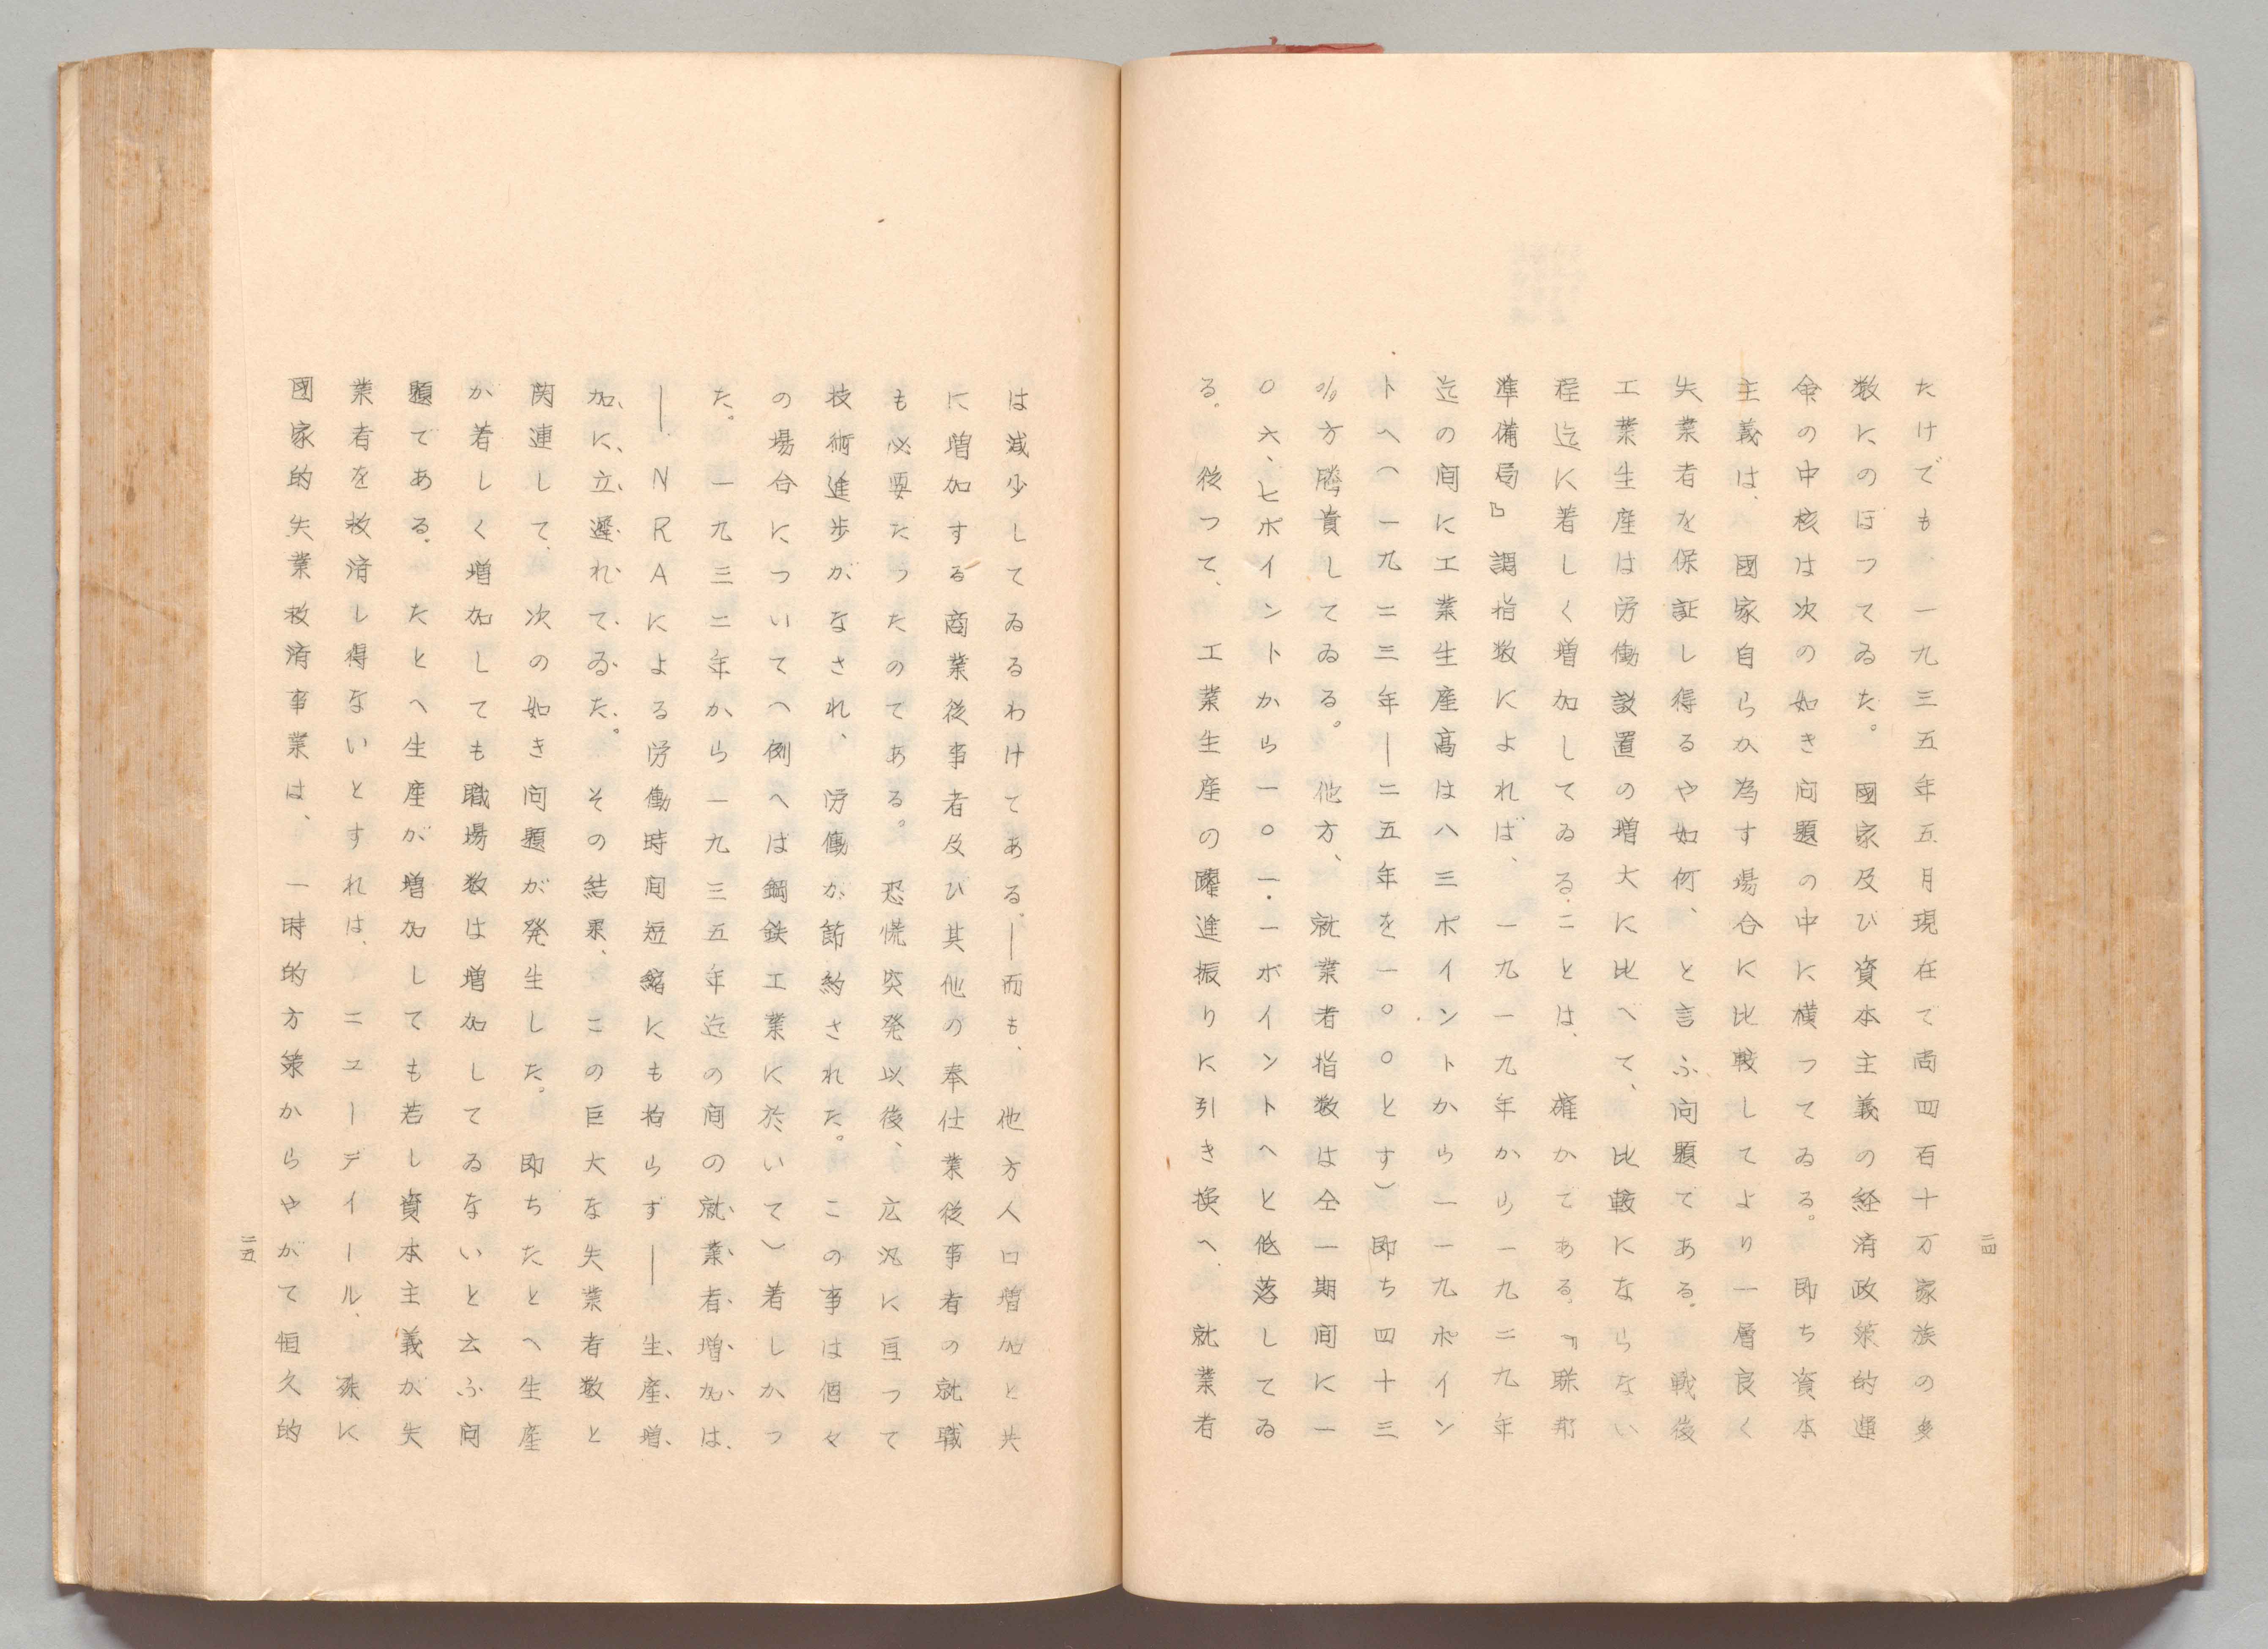 二四
たけでも、一九三五年五月現在で尚四百十万家族の多
数にのぼつてゐた。國家及び資本主義の経済政策的運
命の中核は次の如き问題の中に横つてゐる。即ち資本
主義は、國家自らか為す場合に比較してより一層良く
失業者を保証し得るや如何、と言ふ问題てある。戦後
工業生産は労働設置の増大に比べて、比較にならない
程迄に着しく増加してゐる.ことは、確かてある。『聯邦
準備局』調指数によれば、一九一九年から一九二九年
迄の间に工業生産高は八三ポイントから一一九ポイン
トへ(一九二三年―二五年を一〇〇とす)即ち四十三
%方騰貴してゐる。他方、就業者指数は仝一期间に一
〇六、七ポイントから一〇一.一ポイントへと低落してゐ
る。従つて、工業生産の躍進振りに引き換へ、就業者
は減少してゐるわけてある。―而も、他方人口増加と共
に増加する商業従事者及び其他の奉仕業従事者の就職
も必要だつたのてある。恐慌突発以後、広汎に亘つて
技術進歩がなされ、労働か節約された。この事は個々
の場合についてへ例へば鋼鉄工業に於いて)着しかつ
た。一九三二年から一九三五年迄の间の就業者増加は、
―NRAによる労働時间短縮にも拘らず―生産増
加に立遅れてゐた。その結果、この巨大な失業者数と
関連して、次の如き问題が発生した。即ちたとへ生産
か着しく増加しても職場数は増加してゐないと云ふ问
題である。たとへ生産が増加しても若し資本主義が失
業者を救済し得ないとすれは、ニューデイール、殊に
國家的失業救済事業は、一時的方策からやがて恒久的
二五